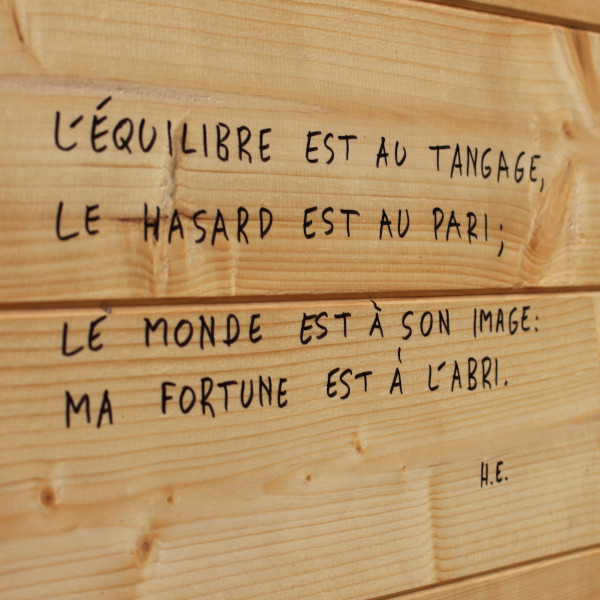 L'ÉQUILIBRE EST AU TANGAGE,
LE HASARD EST AU PARI;
LE MONDE EST À SON IMAGE:
MA FORTUNE EST À L'ABRI.
H.E.